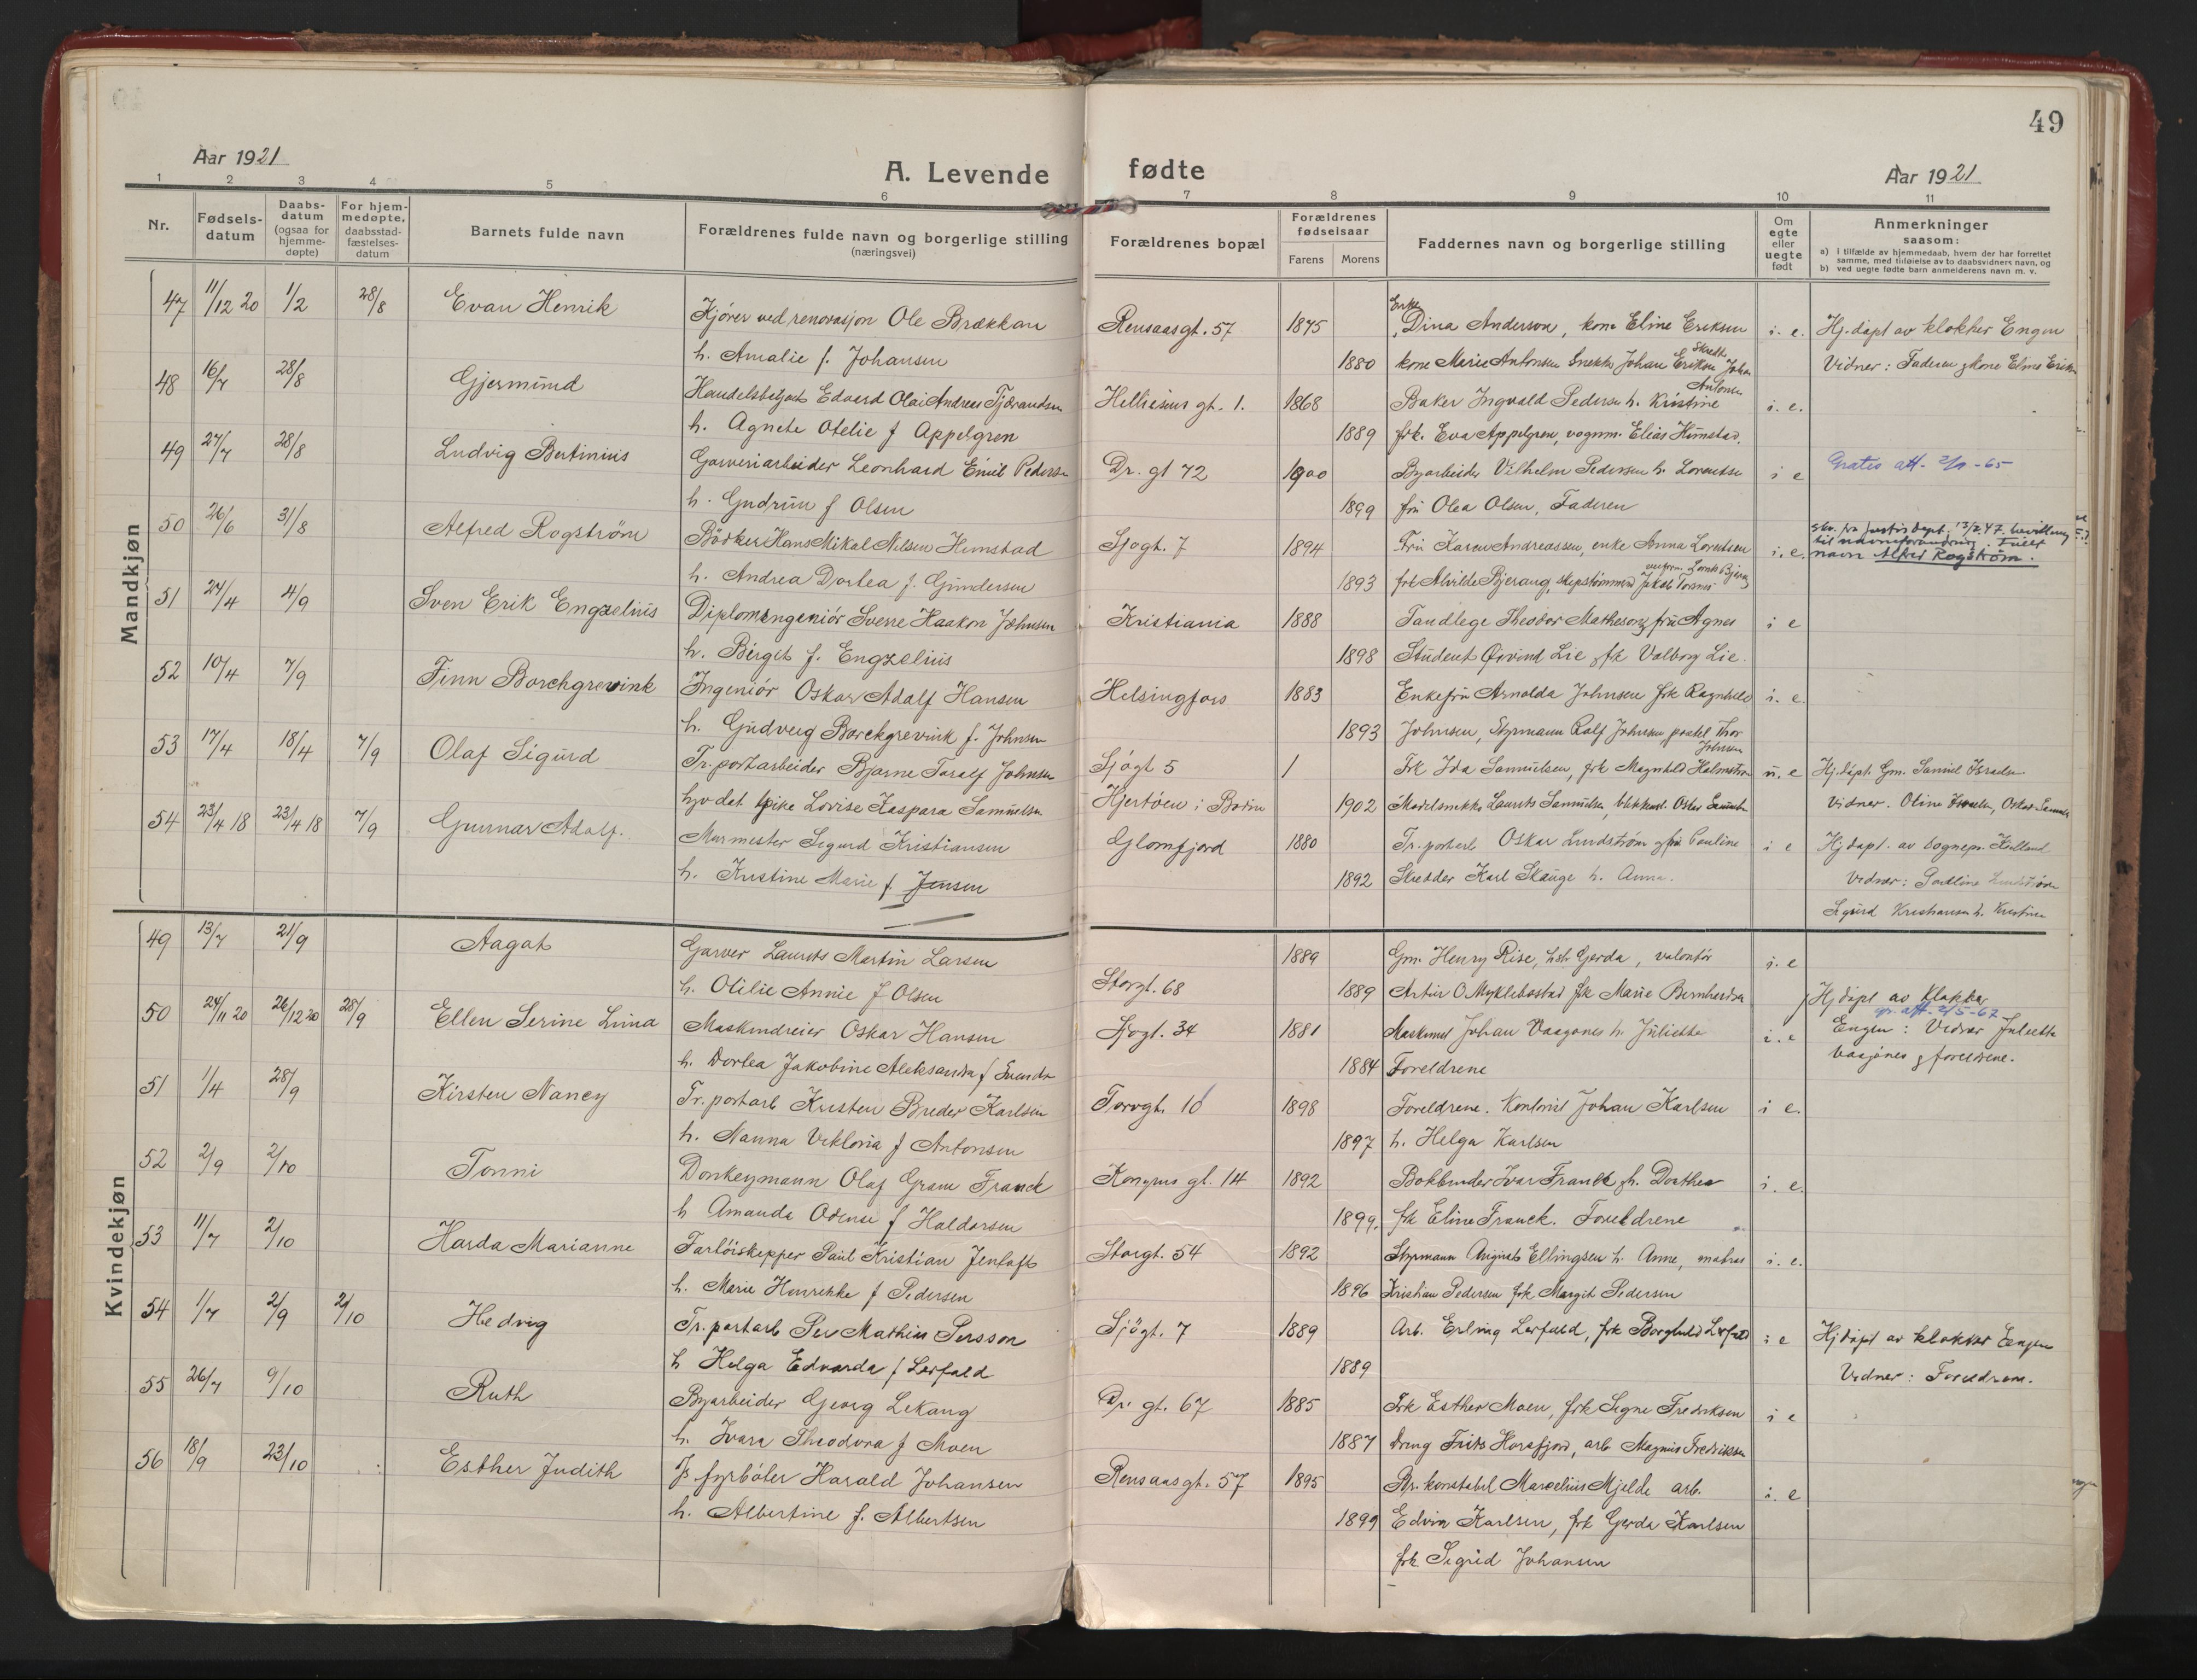 49
Aar 1921
A. Levende fødte
Aar 1921
1 2 3 4 5 6 7 8 9 10 11
Nr.
Fødsels-datum
Daabs-datum (ogsaa for hjemme-døpte)
For hjem-medøpte, daabsstad-fæstelses-datum
Barnets fulde navn
Forældrenes fulde navn og borgerlige stilling (næringsvei)
Forældrenes bopæl
Forældrenes fødselsaar
Farens Morens
Faddernes navn og borgerlige stilling
Om egte eller uegte født
Anmerkninger saasom:
a) i tilfælde av hjemmedaab, hvem der har forrettet samme, med tilføielse av to daabsvidners navn, og
b) ved uegte fødte barn anmelderens navn m. v.
Mandkjøn
47 11/12 20 1/2 28/8 Evan Henrik Kjører ved renovasjon Ole Brækkan Rensaasgt. 57 1875 Enke Dina Anderson, kone Eline Eriksen i. e. Hj.døpt av klokker Engen
h. Amalie f. Johansen 1880 kone Marie Antonsen Snekker Johan Eriksen Skredd. Johan Antonsen Vidner: Faderen g kone Eline Eriksen
48 16/7 28/8 Gjermund Handelsbetjent Edvard Olai Andreas Tjærandsen gt. 1. 1868 Baker Ingvald Pedersen h. Kristine i. e.
h. Agnete Otelie f Appelgren 1889 frk. Eva Appelgren, vognm. Elias Himstad.
49 27/7 28/8 Ludvig Bertinius Garveriarbeider Leonhard Emil Pedersen Dr. gt 72 1900 Byarbeider Vilhelm Pedersen h. Lorentse i e Gratis att. 2/11-65
h. Gudrun f Olsen 1899 fru Olea Olsen, Faderen
50 26/6 31/8 Alfred Rogstrøm Bödker Hans Mikal Nilsen Hunstad Sjøgt. 7 1894 Fru Karen Andreassen, enke Anna Lorentsen i. e. skr. fra justisdept. 13/2 47 bevilling til navneforandring. Fullt navn Alfred Rogstrøm.
h. Andrea Dortea f. Gundersen 1893 frk Alvilde Bjerang, Jakob
51 24/4 4/9 Sven Erik Engzelius Diplomingeniör Sverre Haakon Johnsen Kristiania 1888 Tandlege Theodor Matheson g fru Agnes i e
h. Birgit f. Engzelius 1898 Student Øivind Lie g frk Valborg Lie.
52 10/4 7/9 Finn Borchgrevink Ingeniör Oskar Adolf Hansen Helsingfors 1883 Enkefru Arnolda Johnsen frk Ragnhild i. e.
h. Gudveig Borchgrevink f. Johnsen 1893 Johnsen, Styrmann Ralf Johnsen Thor Johnsen
53 17/4 18/4 7/9 Olaf Sigurd Tr.portarbeider Bjarne Toralf Johnsen Sjøgt 5 / Frk Ida Samuelsen, frk Magnhild Holmstrøm u. e Hj.døpt. Gm. Samuel Israelsen
hjv det pike Lovise Kaspara Samuelsen Hjertöen i Bodin 1902 Modelsnekker Laurits Samuelsen, blikkensl. Oskar Samuelsen Vidner. Oline Israelsen, Oskar Samuelsen
54 23/4 18 23/4 18 7/9 Gunnar Adolf. Murmester Sigurd Kristiansen Glomfjord 1880 Tr.portarb Oskar Lundstrøm g fru Pauline i e Hj døpt. av Sognepr. Kielland
h. Kristine Marie f. Jensen 1892 Skredder Karl Skauge h. Anna. Vidner: Pauline Lundstrøm
Sigurd Kristiansen h. Kristine
Kvindekjøn
49 13/7 21/9 Aagot Garver Laurits Martin Larsen 1889 Gm. Henry Rise, hst. Gerda, volontör i. e
h. Otilie Annie f Olsen Storgt. 68 1889 Artur O. Myklebostad frk Marie Bernhardsen
50 24/11 20 26/12 20 28/9 Ellen Serine Linna Maskindreier Oskar Hansen Sjøgt. 34 1881 Maskinist Johan Vaagønes h. Juliette i. e Hj døpt av klokker
gr. att. 2/5-67
h. Dortea Jakobine Aleksandra f 1884 Foreldrene Engen: Vidner Juliette Vaagønes g foreldrene.
51 1/4 28/9 Kirsten Nancy Tr.portarb Kristen Breder Karlsen Torvgt. 10 1898 Foreldrene. Kontorist Johan Karlsen i e.
h. Nanna Viktoria f Antonsen 1897 h. Helga Karlsen
52 2/9 2/10 Tonni Donkeymann Olaf Gram Franck Kongens gt. 14 1892 Bokbinder Ivar Franck g h. Dorthea i. e.
h Amanda Odense f Haldorsen 1899. frk Eline Franck. Foreldrene
53 11/7 2/10 Harda Marianne Farløiskipper Paul Kristian Jenloft Storgt. 54 1892 Styrmann August Ellingsen h. Anne, matros i. e.
h. Marie Henrikke f Pedersen 1896 Kristian Pedersen frk Margit Pedersen
54 1/7 2/9 2/10 Hedvig Tr.portarb Per Mathias Persson Sjøgt. 7 1889 Arb. Erling Lerfald, frk Borghild Lerfald i e Hj døpt av klokker Engen
h Helga Edvarda f Lerfald 1889 Vidner: Foreldrene.
55 26/7 9/10 Ruth Byarbeider Georg Lekang Dr. gt. 67 1885 Frk Esther Moen, frk Signe Fredriksen i e
h. Ivara Theodora f Moen 1887 Dreng Frits Horsfjord, arb Magnus Fredriksen
56 18/9 23/10 Esther Judith fyrböter Harald Johansen Rensaasgt. 57 1895 konstabel Marcelius Mjelde arb. i. e
h. Albertine f. Albertsen 1899 Edvin Karlsen, frk Gerda Karlsen
frk Sigrid Johansen